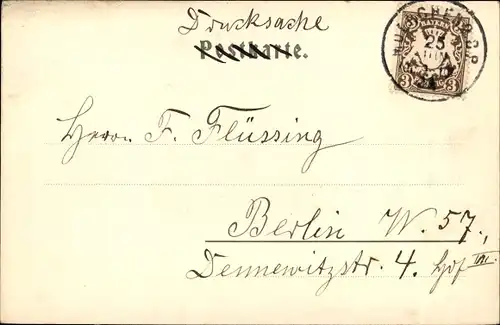 Drucksache
Postkarte.
MUENCHEN 2 B.P.
25
BAYERN
3 3
Herrn F. Flüssing
Berlin W. 57.,
Dennewitzstr. 4. Hof III.